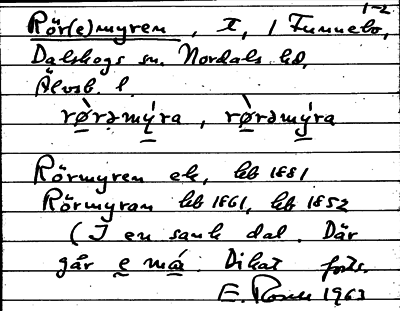 1-2
Rör(e)myren, I, / Funnebo,
Dalskogs sn. Nordals hd,
Älvsb. l.
rø̀rəmýra, rø̀rəmýra
Rörmyren ek, hb 1881
Rörmyran hb 1861, hb 1852
(I en sank dal. Där
går e må. Diket forts.
E. Rosell 1963